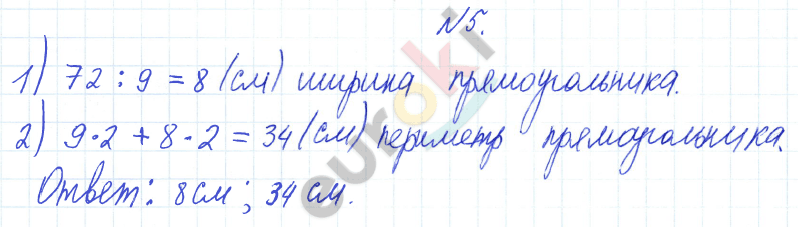 №5.
1) 72 : 9 = 8 (см) ширина прямоугольника.
2) 9·2 + 8·2 = 34 (см) периметр прямоугольника.
Ответ: 8 см; 34 см.
euroki